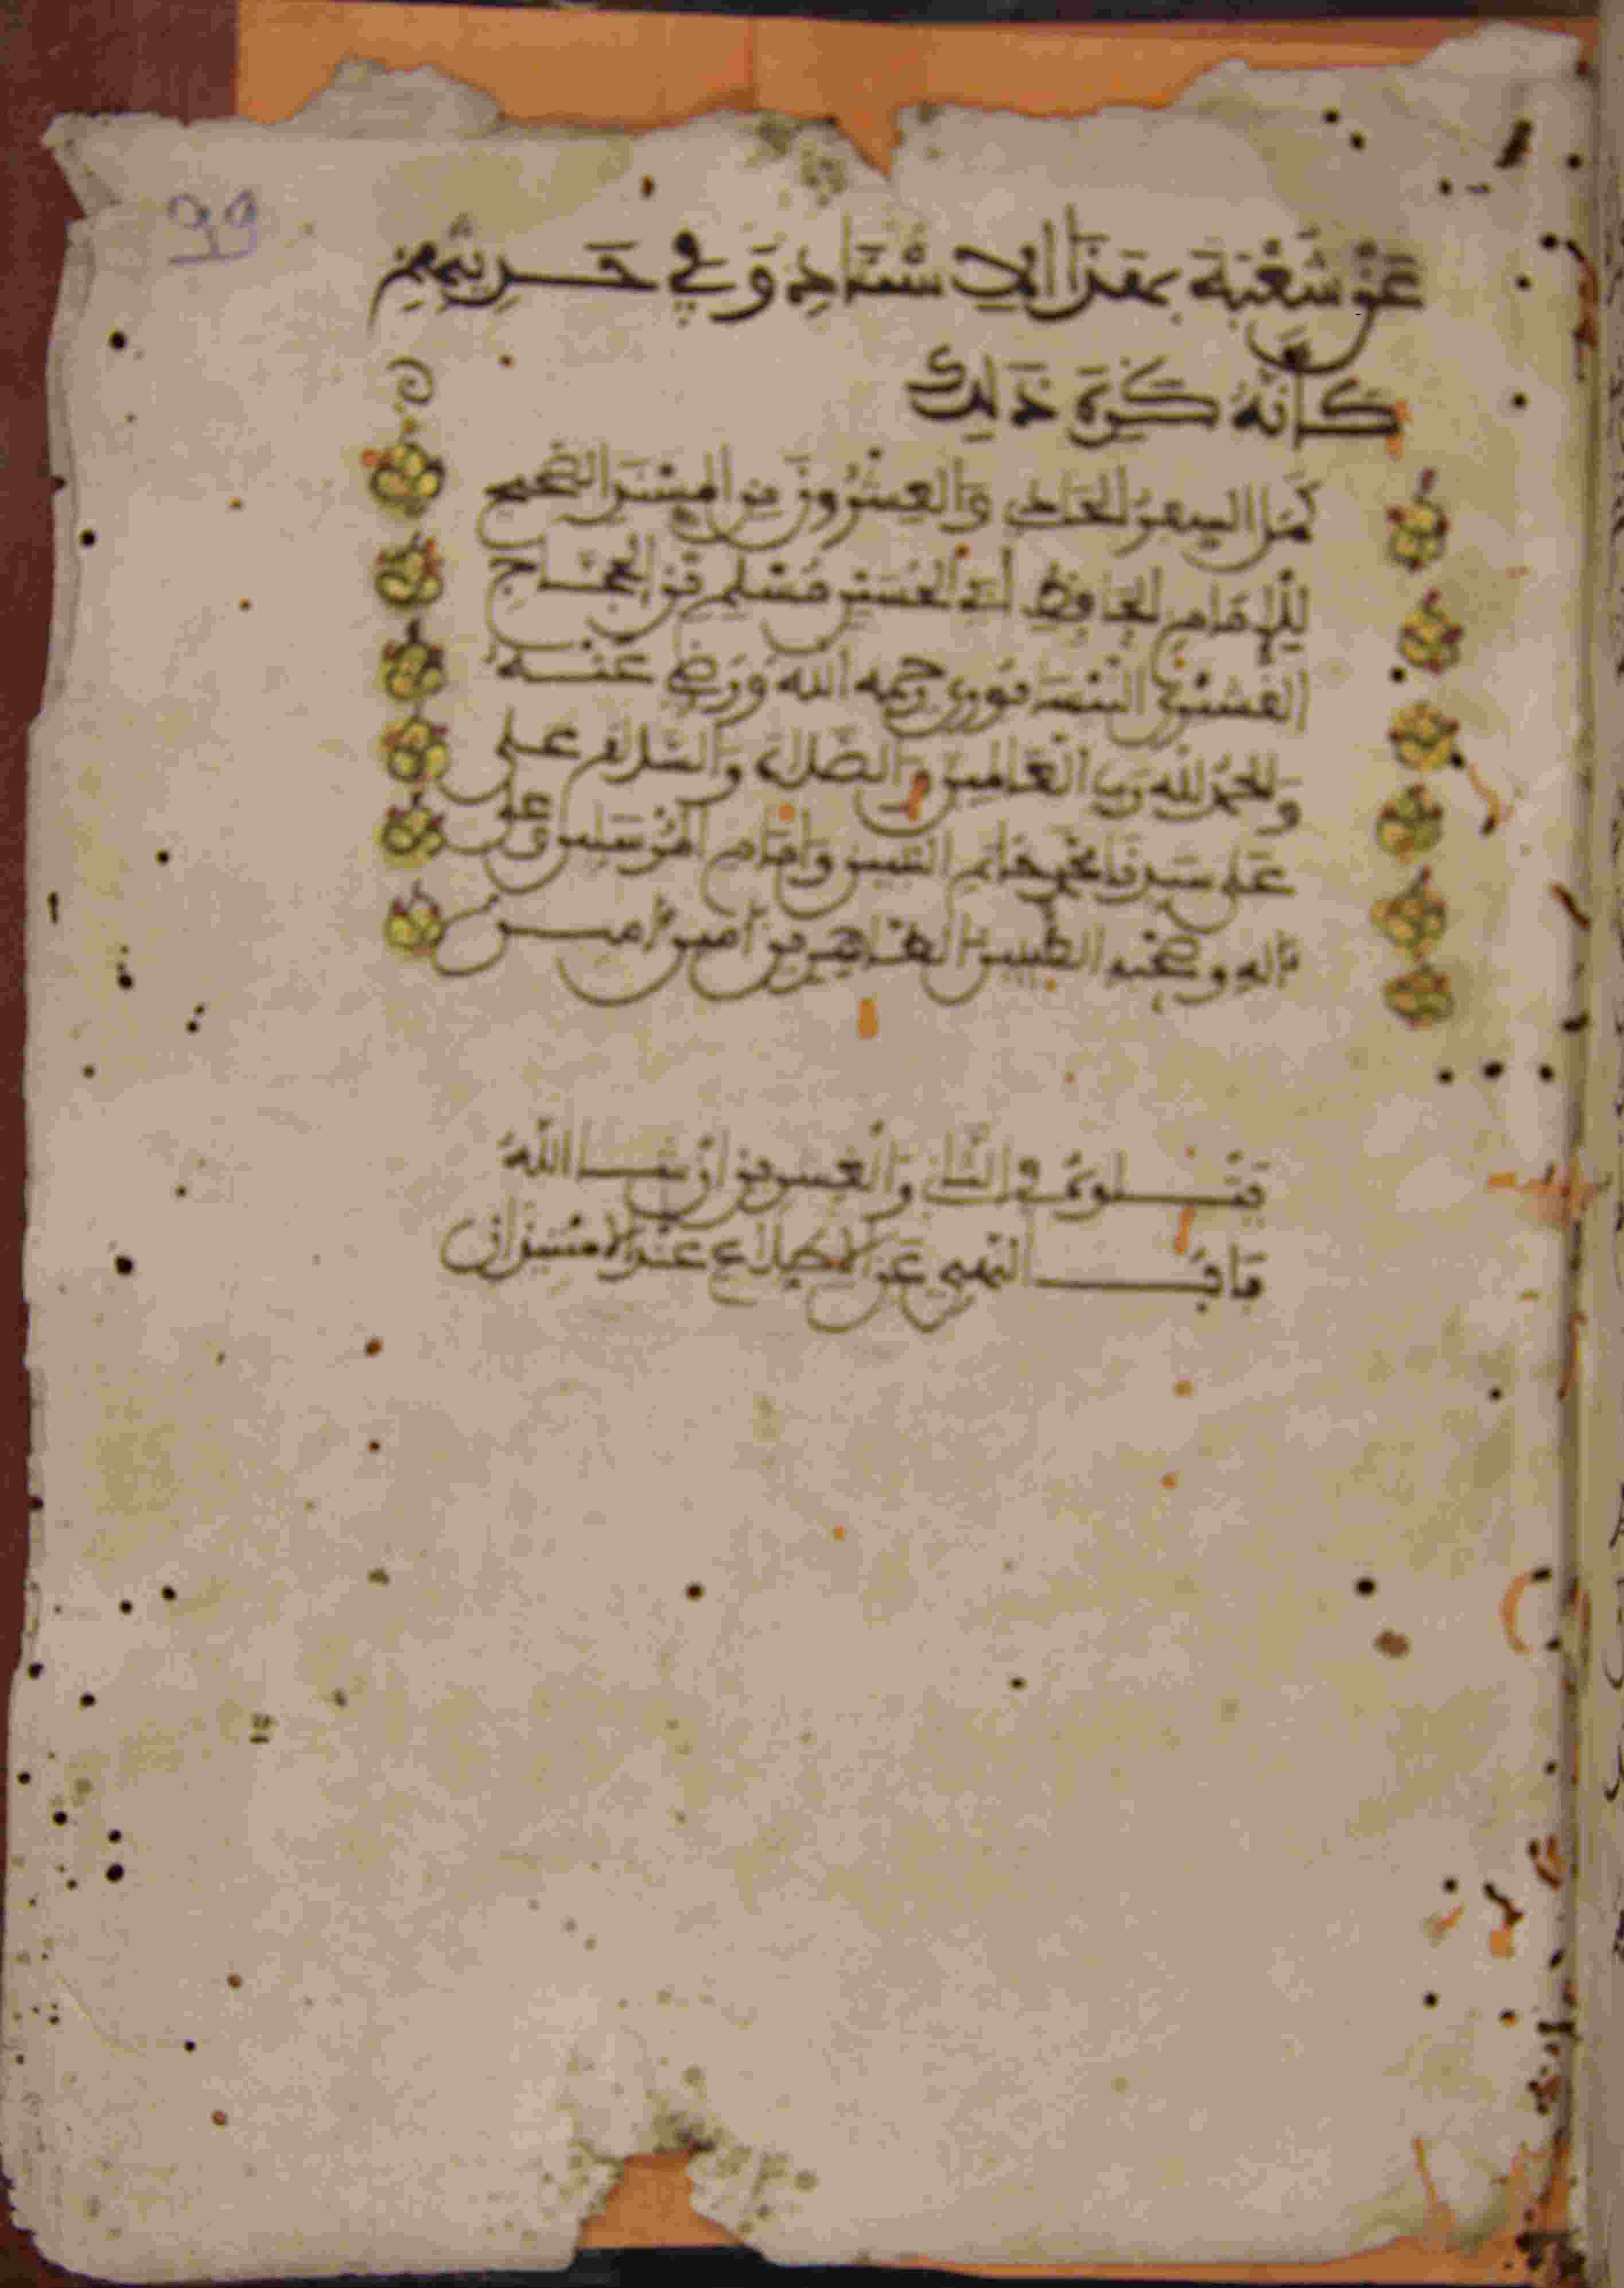 99
عَنْ شُعْبَةَ بِهَذَا الْإِسْنَادِ وَفِي حَدِيثِهِمْ
كَأَنَّهُ كَرِهَ ذَلِكَ
كمل السفر الحادي والعشرون من المسند الصحيح
للإمام الحافظ أبي الحسين مسلم بن الحجاج
القشيري النيسابوري رحمه الله ورضي عنه
والحمد لله رب العالمين والصلاة والسلام على
على سيدنا محمد خاتم النبيين وإمام المرسلين وعلى
ءاله وصحبه الطيبين الطاهرين ءامين ءامين
يتلوه في الثاني والعشرين إن شا الله
باب النهي عن الاطلاع عند الاستيذان